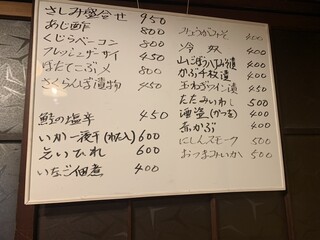 さしみ盛合せ 950
あじ酢 800
くじらベーコン 800
フレッシュサーサイ 450
ほたてこぶ〆 800
さくらんぼ漬物 450
鮭の塩辛 450
いか一夜干(わた入) 600
えいひれ 600
いなご佃煮 400
しょうがみそ 400
冷奴 400
山ごぼう 漬 400
かぶ千枚漬 400
玉ねぎワイン漬 450
たたみいわし 500
酒盗(かつを) 400
赤かぶ 400
にしんスモーク 500
おつまみいか 500